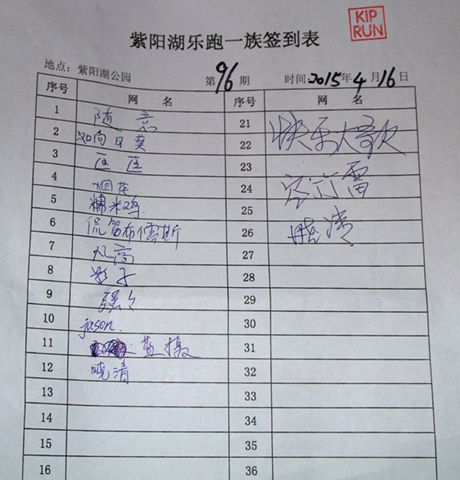 KIP
RUN
紫阳湖乐跑一族签到表
地点：紫阳湖公园 第96期 时间2015年4月16日
序号 网 名 序号 网 名
1 随意 21
2 向日葵 22 快乐大歌
3 匡匡 23
4 烟花 24 雷
5 糯米鸡 25
6 侃笛布儒斯 26 晓清
7 风高 27
8 影子 28
9 强 29
10 jason. 30
11 31
12 晓清 32
13 33
14 34
15 35
16 36